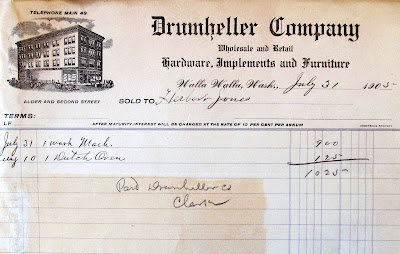 TELEPHONE MAIN 49
Drumheller Company
Wholesale and Retail
Hardware, Implements and Furniture
Walla Walla, Wash. July 31 1905
ALDER AND SECOND STREET
SOLD TO Jones
TERMS:
AFTER MATURITY INTEREST WILL BE CHARGED AT THE RATE OF 10 PER CENT PER ANNUM
LF
July 31 1 wash Mach. 900
Aug 10 1 Dutch Oven 125
1025
Paid Drumheller Co
Clark